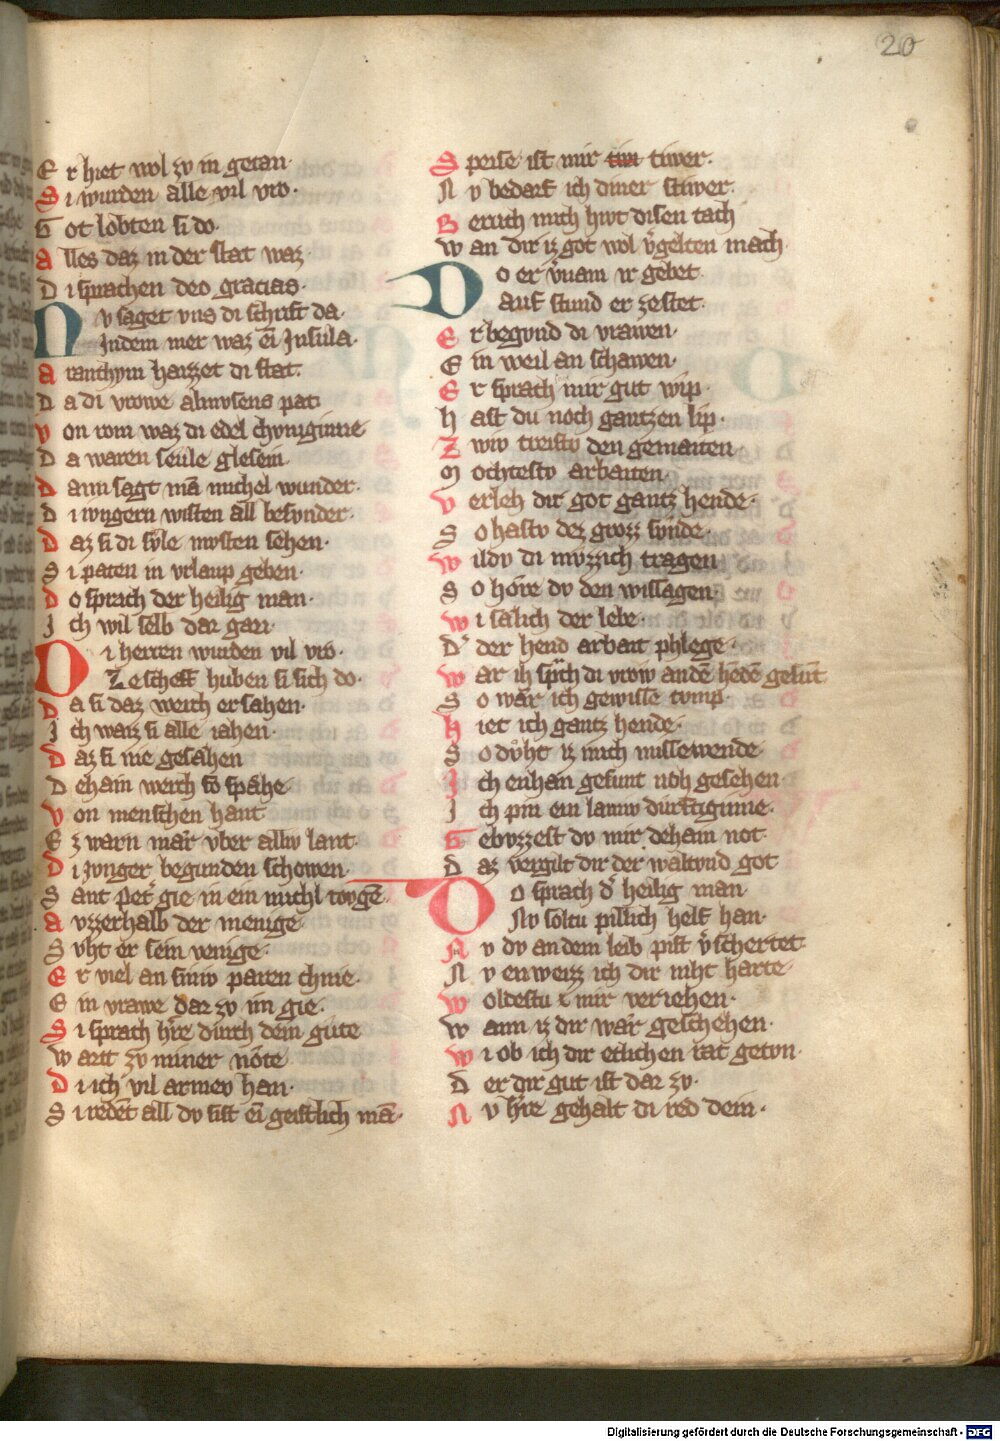 20
Er hiet wol zv in getan·
Si wurden alle vil vro·
Got lobten si do·
Alles daz in der stat waz
Di sprachen deo gracias·
Nv saget vns di schrift da·
Indem mer waz ei̅ Insula·
Aranchym haizzet di stat·
Da di vrowe almvsens pat·
Von rom waz di edel chvniginne
Da waren seule glesein·
Dann sagt ma̅ michel wunder·
Di ivngern wisten all besvnder·
Daz si di sv̂le mvsten sehen·
Si paten in vrlaup geben·
Do sprach der heilig man·
Ich wil selb dar gan·
Di herren wurden vil vro·
Ze scheff huben si sich do·
Da si daz werch ersahen·
Ich waiz si alle iahen·
Daz si nie gesahen
Dehain werch so spâhe·
Von menschen hant
Ez warn mâr vber alliv lant·
Di ivnger begunden schowen·
Sant Peter gie in ein michl
Avzzerhalb der menige·
Svht er sein venige·
Er viel an siniv paren chnie·
Ein vrawe dar zv im gie·
Si sprach h're durch dein gute
Wartt zv miner nôte
Di ich vil armev han·
Si redet all dv sist ei̅ geistlich ma̅·
Speise ist mir tiwer·
Nv bedarf ich diner stiwer·
Beruch mich hivt disen tach
Wan dir iz got wol v'gelten mach·
Do er v'nam ir gebet·
Auf stund er ze stet·
Er begvnd di vrawen·
Ein weil an schawen·
Er sprach mir gut wip·
Hast du noch gantzen lip·
Z wiv treistv den gemaiten·
Mochtestv arbaiten·
Verleh dir got gantz hende·
So hastv dez grozz svnde·
Wildv di mvzzich tragen
So hôre dv den wissagen·
Wi sâlich der lebe·
D' der hend arbait phlege·
War ih sprich di vrow an de̅ hende̅ gesunt
So wâr ich gewisse tvmp·
Hiet ich gantz hende·
So dvht iz mich missewende·
Ich enhan gesunt noh gesehen·
Ich pin ein lamiv durftiginne·
Gebvzzest dv mir dehain not·
Daz vergilt dir der waltund got
Do sprach d' heilig man·
Nv soltu pillich helf han·
Nv dv an dem leib pist v'schertet·
Nv enweizz ich dir niht harte
Woldestu mir veriehen·
Wann iz dir wâr geschehen·
Wi ob ich dir etlichen rat getvn·
Der dir gut ist dar zv·
Nv h're gehalt di red dein·
Digitalisierung gefördert durch die Deutsche Forschungsgemeinschaft - DFG